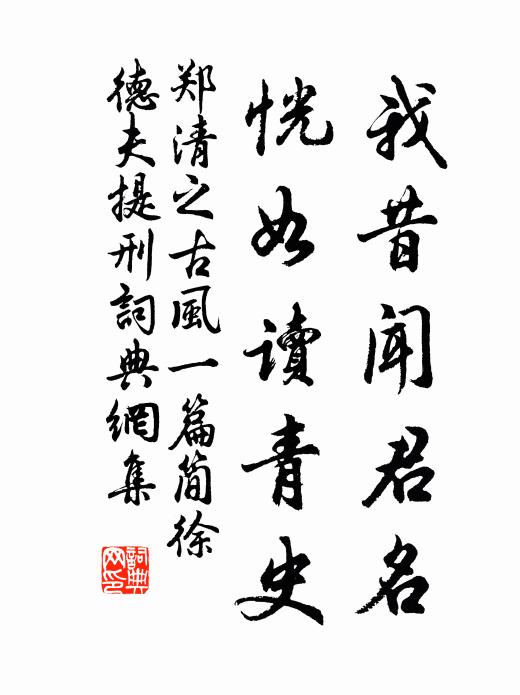 我昔聞君名
恍如讀青史
郑清之古風一篇简徐
德夫提刑詞典網集
詞典网印